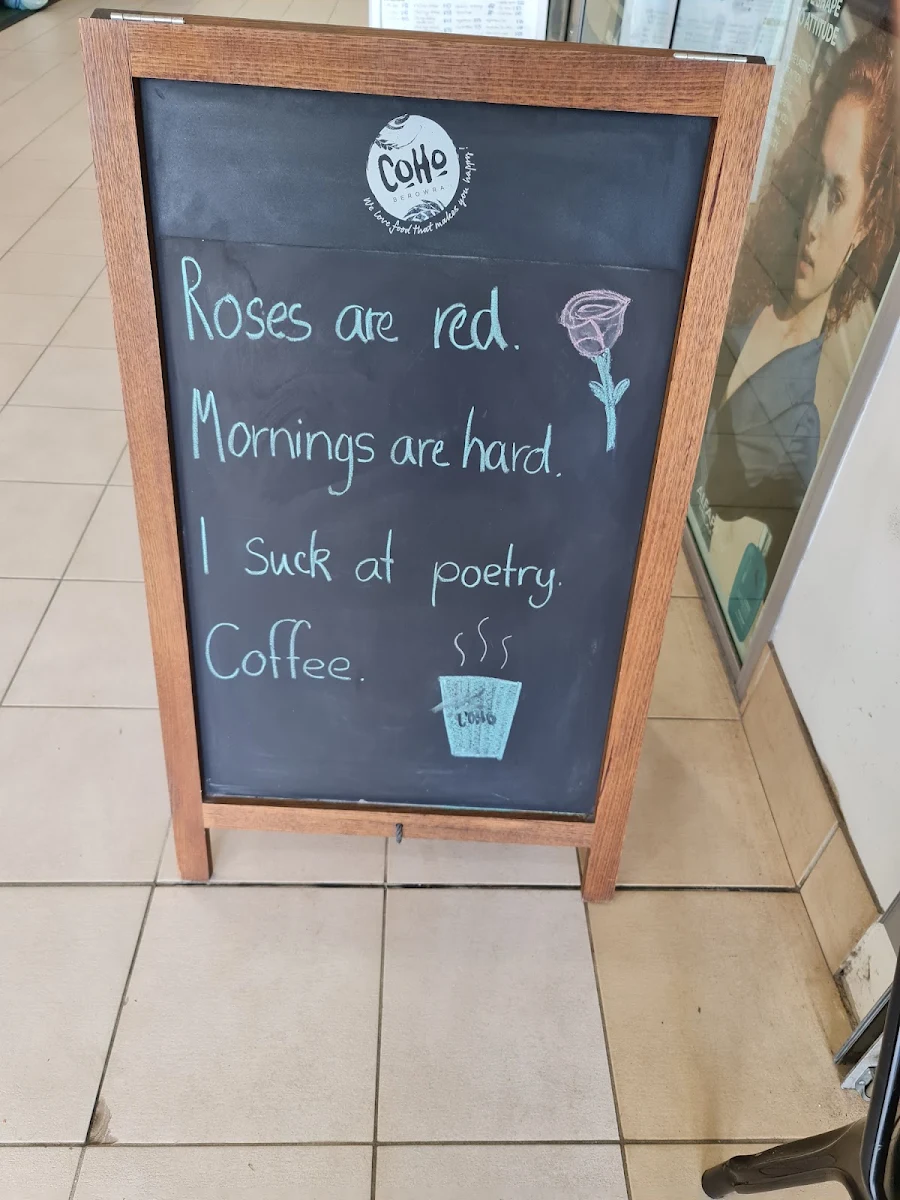 COHO
BEROWRA
We love food that makes you happy!
Roses are red.
Mornings are hard.
I suck at poetry.
Coffee.
COHO
ATTITUDE